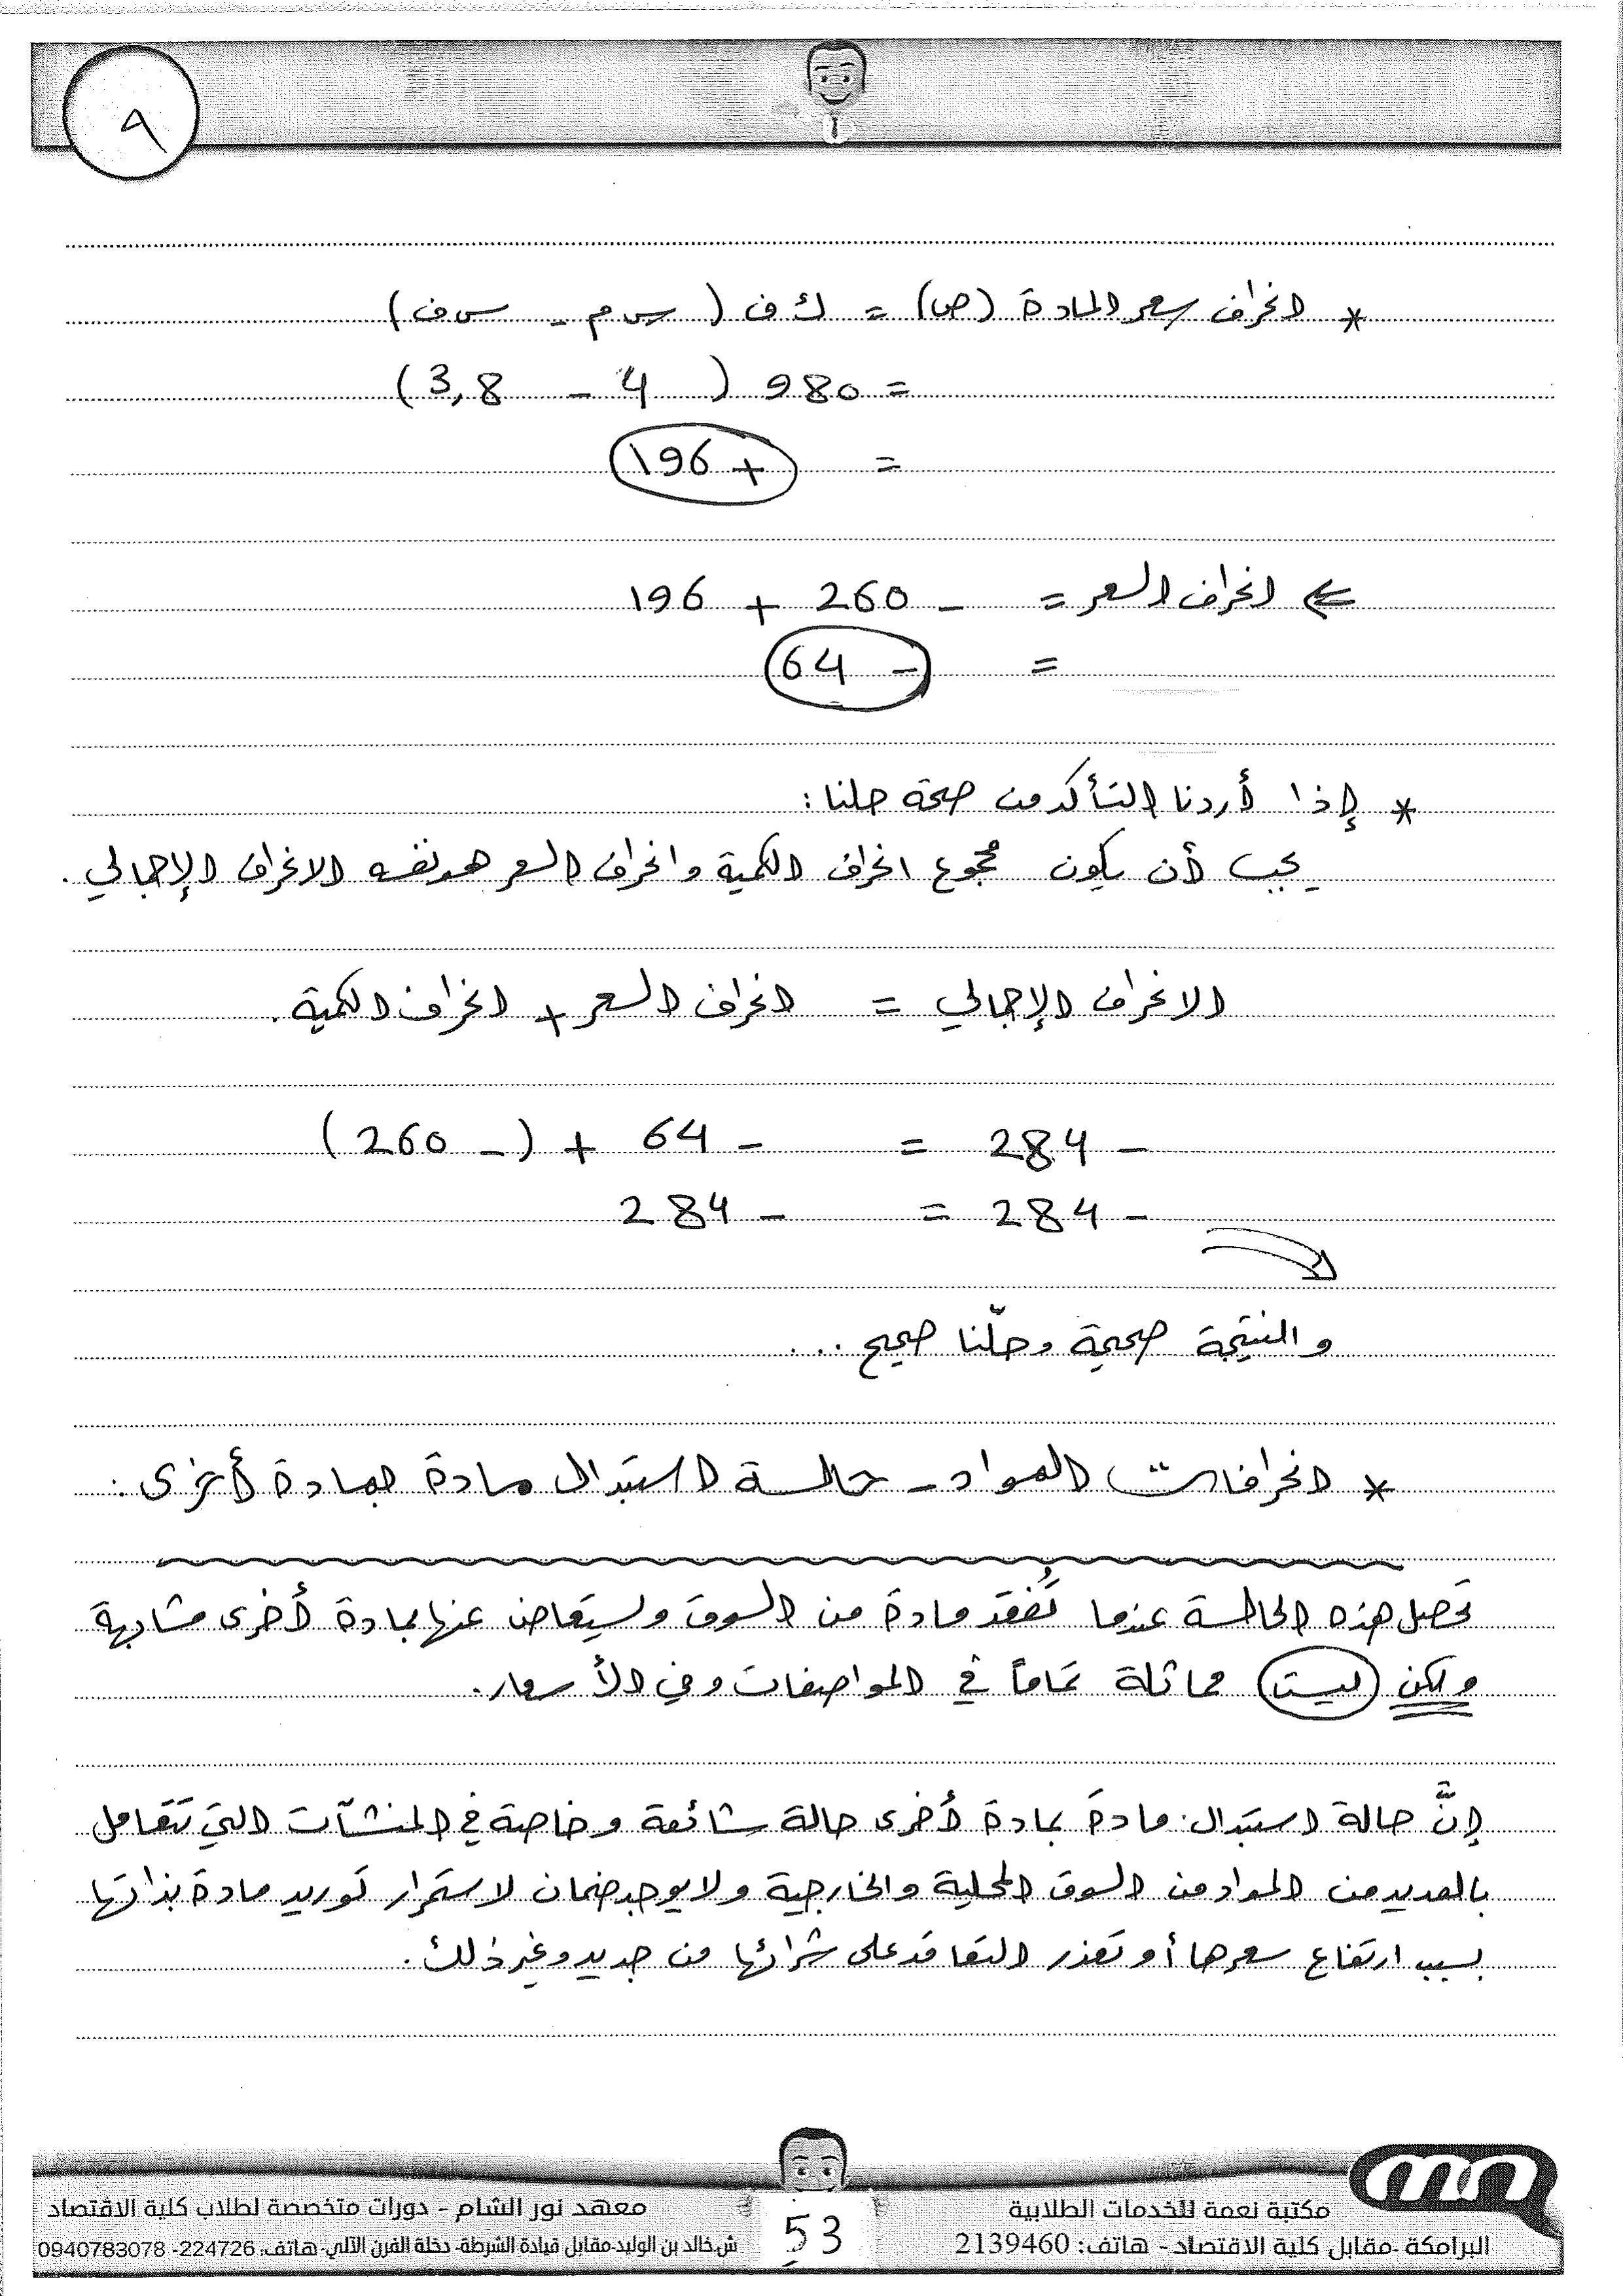 ٩
* انحراف سعر المادة (ص) = ك ف (س م - س ف)
= 980 (4 - 3,8)
= + 196
⇐ انحراف السعر = - 260 + 196
= - 64
* إذا أردنا التأكد من صحة حلنا :
يجب أن يكون مجموع انحراف الكمية وانحراف السعر هو نفسه الانحراف الإجمالي .
الانحراف الإجمالي = انحراف السعر + انحراف الكمية .
- 284 = - 64 + (- 260)
- 284 = - 284
والنتيجة صحيحة وحلّنا صحيح ...
* انحرافات المواد - حالة استبدال مادة بمادة أخرى :
تحصل هذه الحالة عندما تُفقد مادة من السوق ويستعاض عنها بمادة أخرى مشابهة
ولكن ليست مماثلة تماماً في المواصفات وفي الأسعار .
إنَّ حالة استبدال مادة بمادة أخرى حالة شائعة وخاصة في المنشآت التي تتعامل
بالعديد من المواد من السوق المحلية والخارجية ولا يوجد ضمان لاستمرار توريد مادة بذاتها
بسبب ارتفاع سعرها أو تعذر التعاقد على شرائها من جديد وغير ذلك .
مكتبة نعمة للخدمات الطلابية
البرامكة -مقابل كلية الاقتصاد - هاتف: 2139460
53
معهد نور الشام - دورات متخصصة لطلاب كلية الاقتصاد
ش.خالد بن الوليد-مقابل قيادة الشرطة- دخلة الفرن الآلي-هاتف: 224726- 0940783078